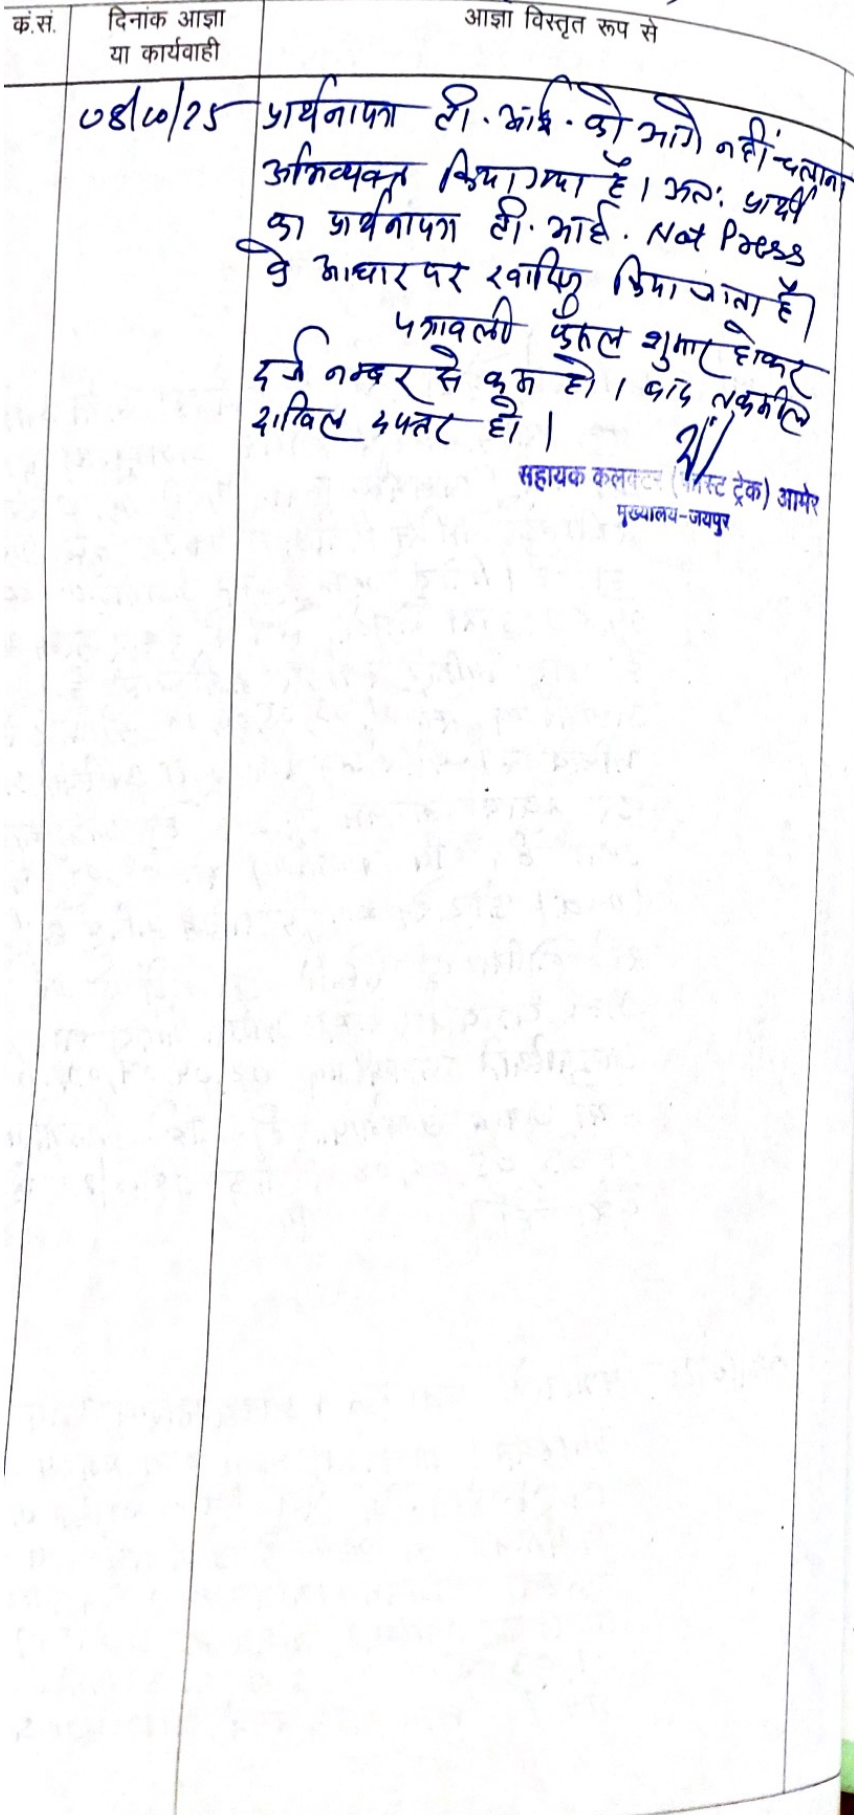 कं.सं.
दिनांक आज्ञा
या कार्यवाही
आज्ञा विस्तृत रूप से
08/10/25
प्रार्थनापत्र टी. आई. को आगे नहीं चलाना
अभिव्यक्त किया गया है। अतः प्रार्थी
का प्रार्थनापत्र टी. आई. Not Press
के आधार पर खारिज किया जाता है।
पत्रावली फैसल शुमार होकर
दर्ज नम्बर से कम हो। बाद तकमील
दाखिल दफ्तर हो।
सहायक कलक्टर (फास्ट ट्रेक) आमेर
मुख्यालय-जयपुर